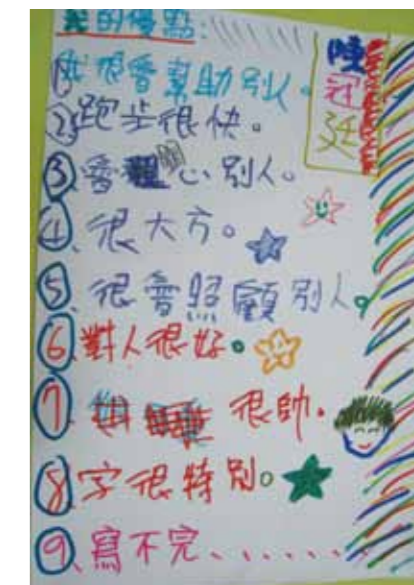 我的優點:
陳冠廷
①我很會幫助別人。
②跑步很快。
③會關心別人。
④、很大方。
⑤、很會照顧別人。
⑥、對人很好。
⑦、很帥。
⑧、字很特別。
⑨、寫不完、、、、、、